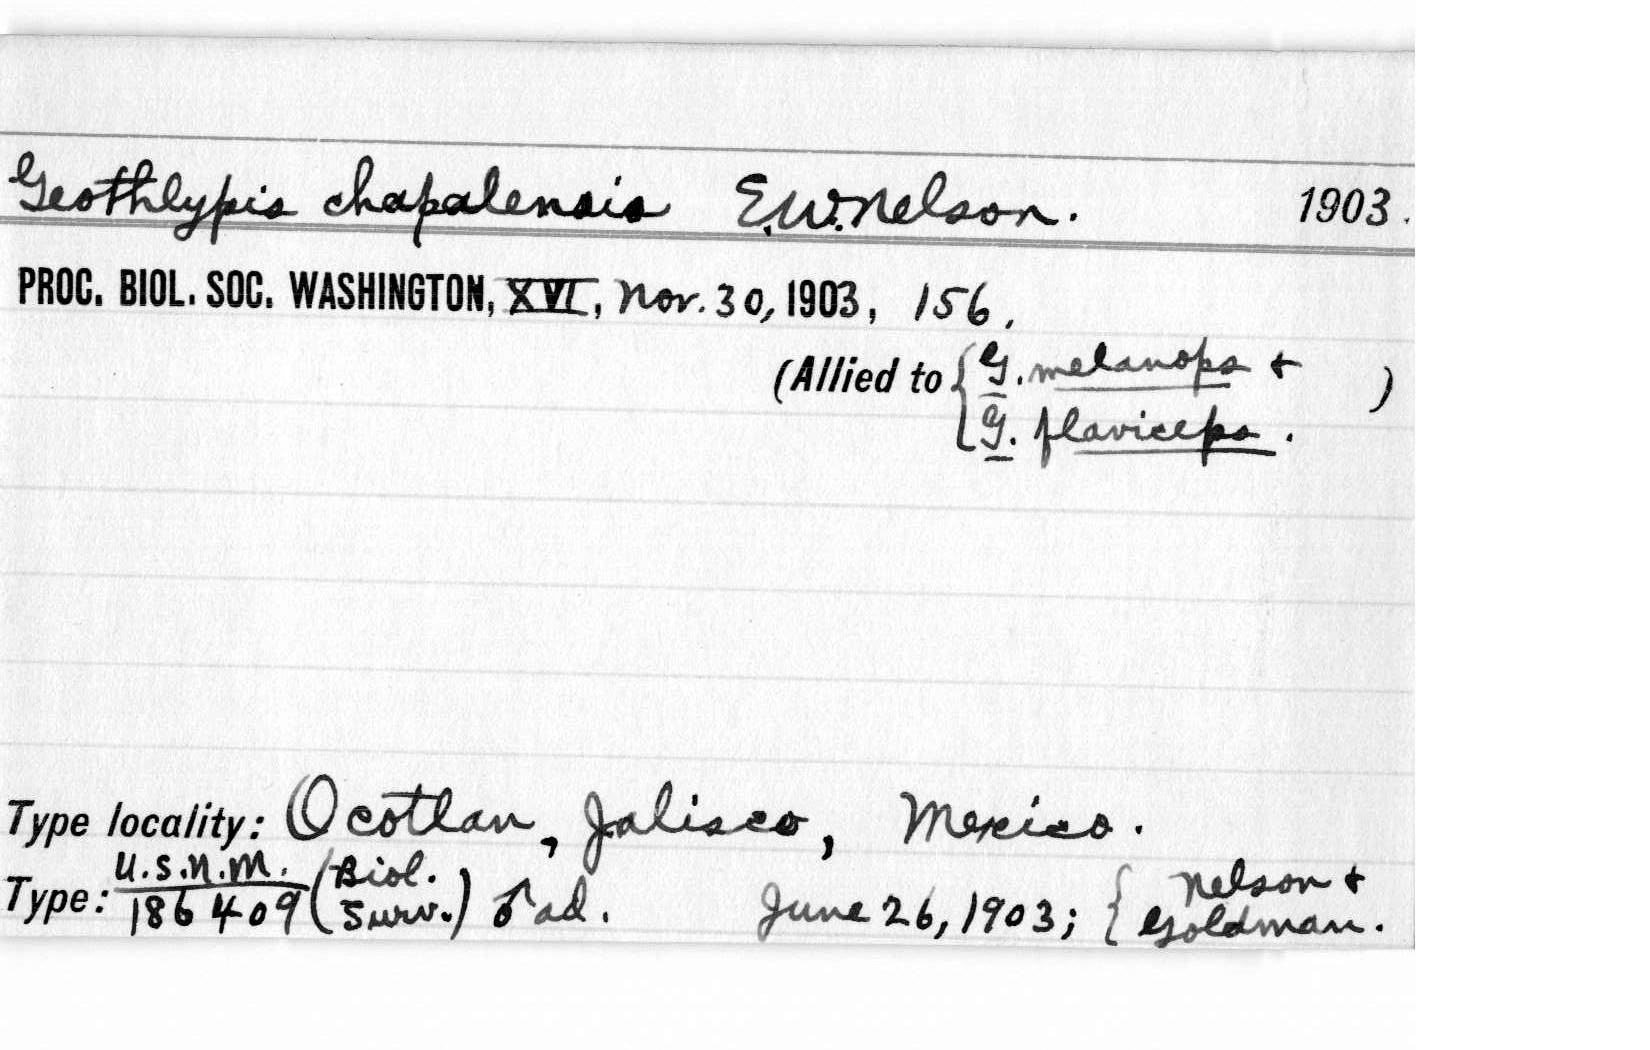 Geothlypis chapalensis E.W. Nelson. 1903.
PROC. BIOL. SOC. WASHINGTON, XVI, Nov. 30, 1903, 156.
(Allied to { G. melanops & )
G. flaviceps.
Type locality: Ocotlan, Jalisco, Mexico.
Type: U.S.N.M. (Biol. { Nelson &
186409 Surv.) ♂ ad. June 26, 1903; Goldman.